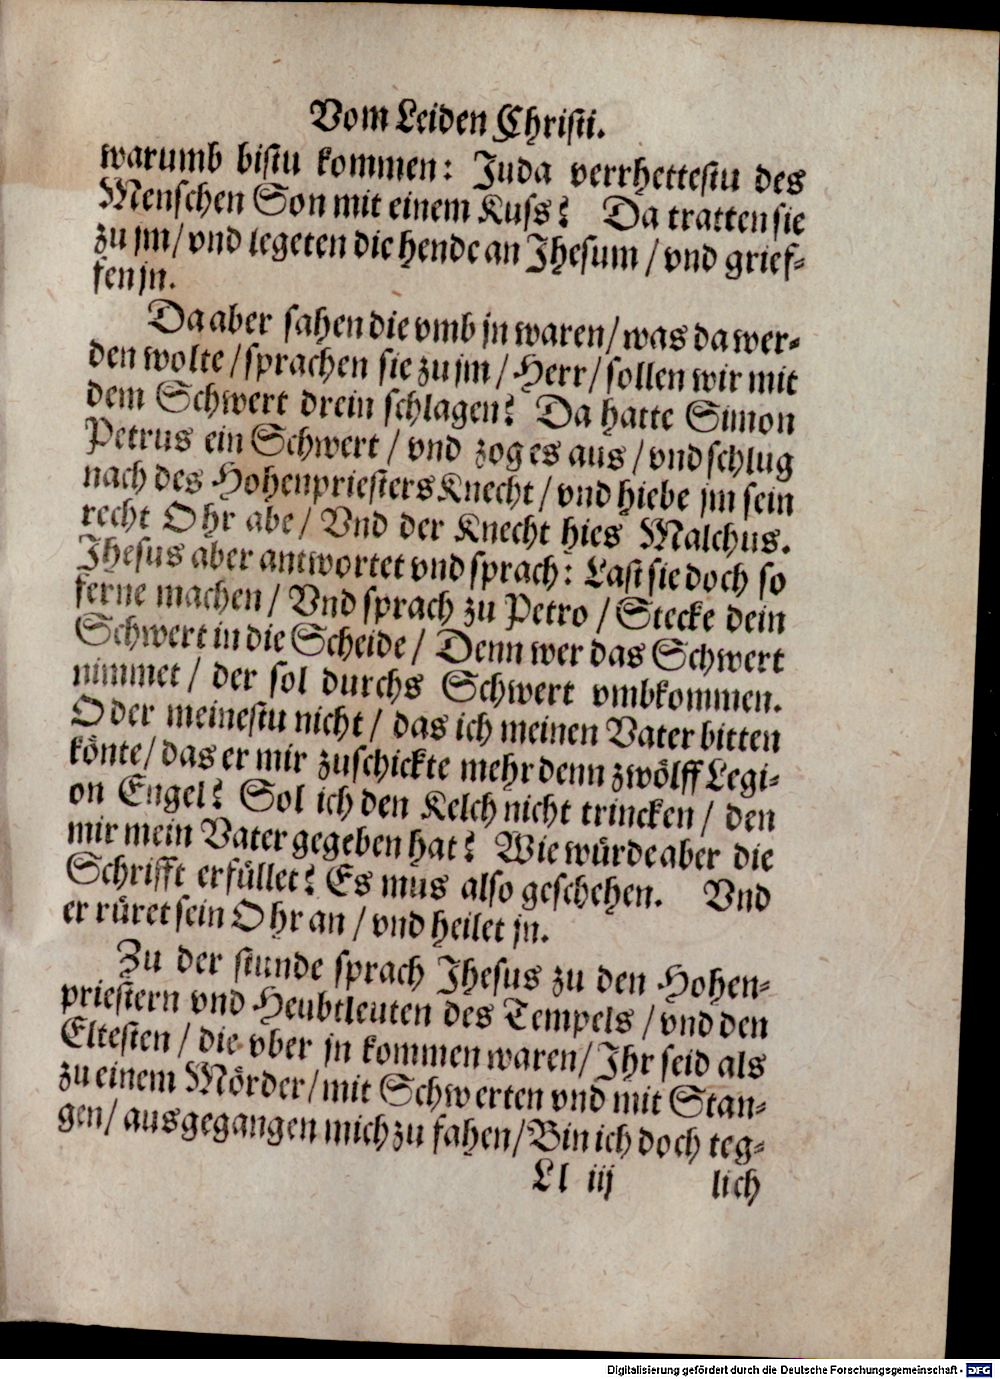 Vom Leiden Christi.
warumb bistu kommen: Juda verrhettestu des
Menschen Son mit einem Kuss? Da tratten sie
zu jm / vnd legeten die hende an Jhesum / vnd grief-
fen jn.
Da aber sahen die vmb jn waren / was da wer-
den wolte / sprachen sie zu jm / Herr / sollen wir mit
dem Schwert drein schlagen? Da hatte Simon
Petrus ein Schwert / vnd zog es aus / vnd schlug
nach des Hohenpriesters Knecht / vnd hiebe jm sein
recht Ohr abe / Vnd der Knecht hies Malchus.
Jhesus aber antwortet vnd sprach: Last sie doch so
ferne machen / Vnd sprach zu Petro / Stecke dein
Schwert in die Scheide / Denn wer das Schwert
nimmet / der sol durchs Schwert vmbkommen.
Oder meinestu nicht / das ich meinen Vater bitten
könte / das er mir zuschickte mehr denn zwölff Legi-
on Engel? Sol ich den Kelch nicht trincken / den
mir mein Vater gegeben hat? Wie würde aber die
Schrifft erfüllet? Es mus also geschehen. Vnd
er rüret sein Ohr an / vnd heilet jn.
Zu der stunde sprach Jhesus zu den Hohen-
priestern vnd Heubtleuten des Tempels / vnd den
Eltesten / die vber jn kommen waren / Ihr seid als
zu einem Mörder / mit Schwerten vnd mit Stan-
gen / ausgegangen mich zu fahen / Bin ich doch teg-
Ll iij lich
Digitalisierung gefördert durch die Deutsche Forschungsgemeinschaft - DFG